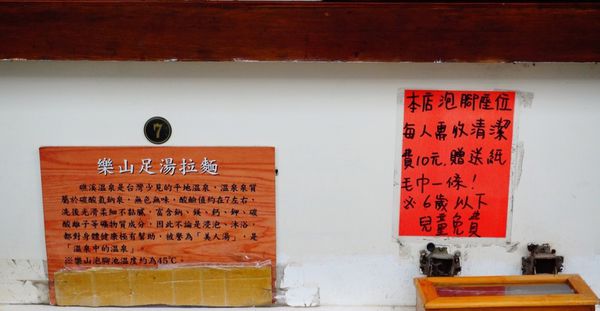 7
樂山足湯拉麵
礁溪溫泉是台灣少見的平地溫泉，溫泉泉質
屬於碳酸氫鈉泉，無色無味，酸鹼值約在7左右，
洗後光滑柔細不黏膩，富含鈉、鎂、鈣、鉀、碳
酸離子等礦物質成分，因此不論是浸泡、沐浴，
都對身體健康極有幫助，被譽為「美人湯」，是
「溫泉中的溫泉」。
※樂山泡腳池溫度約為45℃
本店泡腳座位
每人票收清潔
費10元，贈送紙
毛巾一條！
※6歲以下
兒童免費